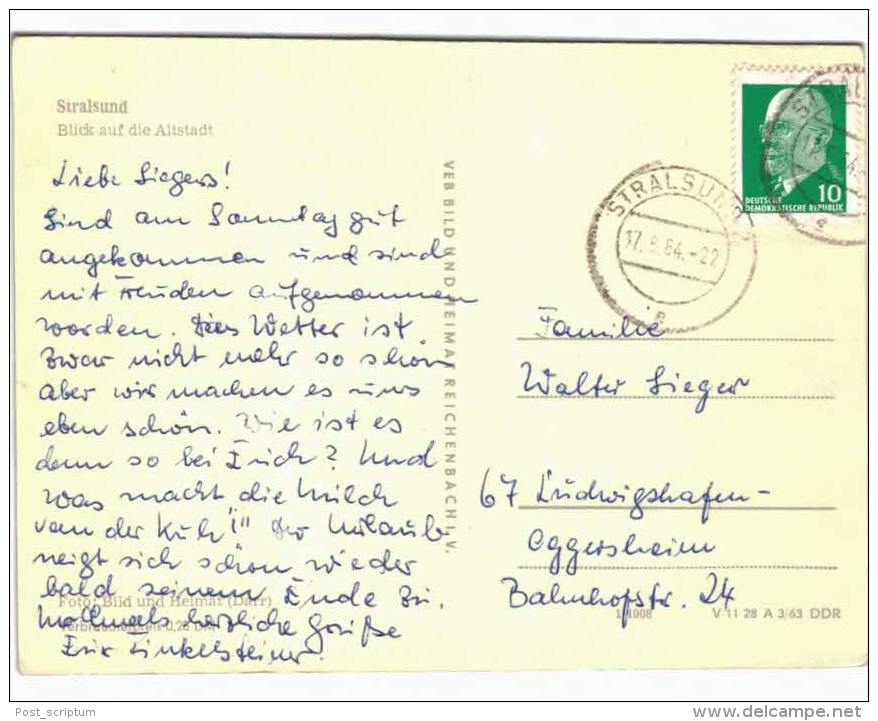 Stralsund
Blick auf die Altstadt
Liebe Siegers!
Sind am Sonntag gut
angekommen und sind
mit Freuden aufgenommen
worden. Das Wetter ist
zwar nicht mehr so schön
aber wir machen es uns
eben schön. Wie ist es
denn so bei Euch? Und
was macht die Milch
von der Kuh"!" Der Urlaub
neigt sich schon wieder
bald seinem Ende zu.
Nochmals herzliche Grüße
Foto: Bild und Heimat (Darr)
Verbraucherpreis 0,20 DM
VEB BILD UND HEIMAT REICHENBACH I. V.
10
DEUTSCHE
DEMOKRATISCHE REPUBLIK
STRALSUND 2
17.8.64.-22
Familie
Walter Sieger
67 Ludwigshafen-
Oggersheim
Bahnhofstr. 24
1/1008 V 11 28 A 3/63 DDR
Post_scriptum
delcampe.net